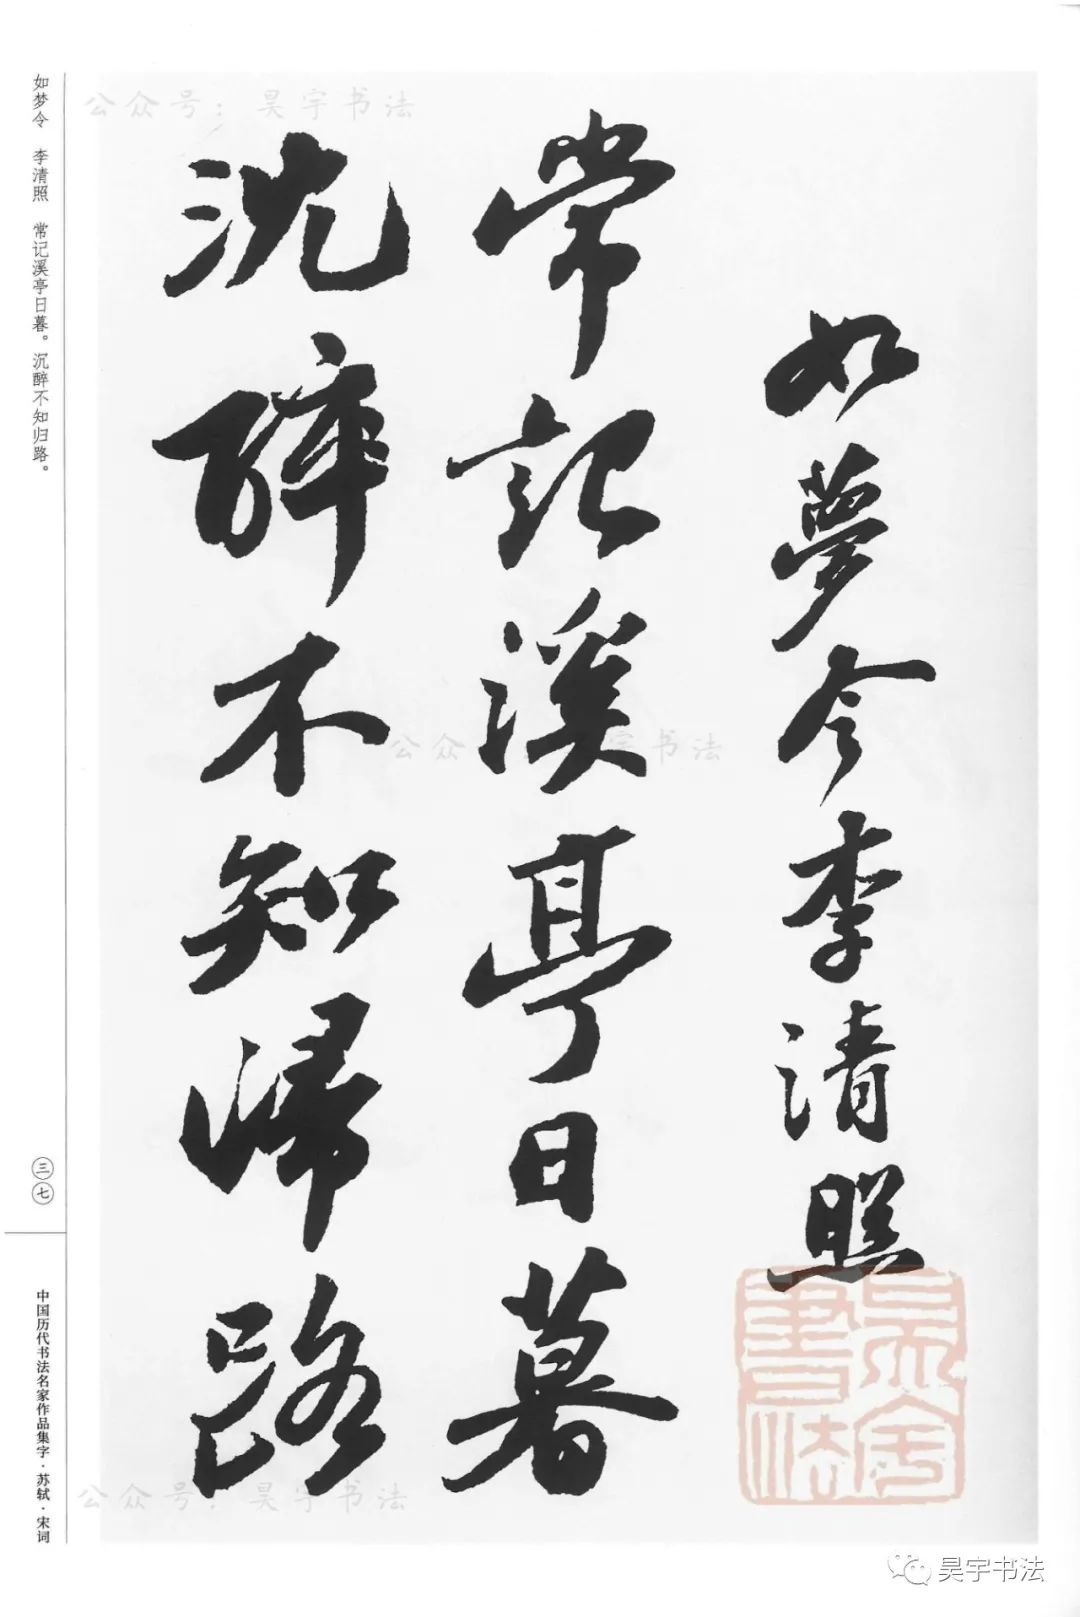 如夢令李清照
常記溪亭日暮
沈醉不知歸路
如梦令　李清照　常记溪亭日暮。沉醉不知归路。
三七
中国历代书法名家作品集字·苏轼·宋词
公众号：昊宇书法
公众 宇书法
公众号：昊宇书法
昊宇書法
昊宇书法